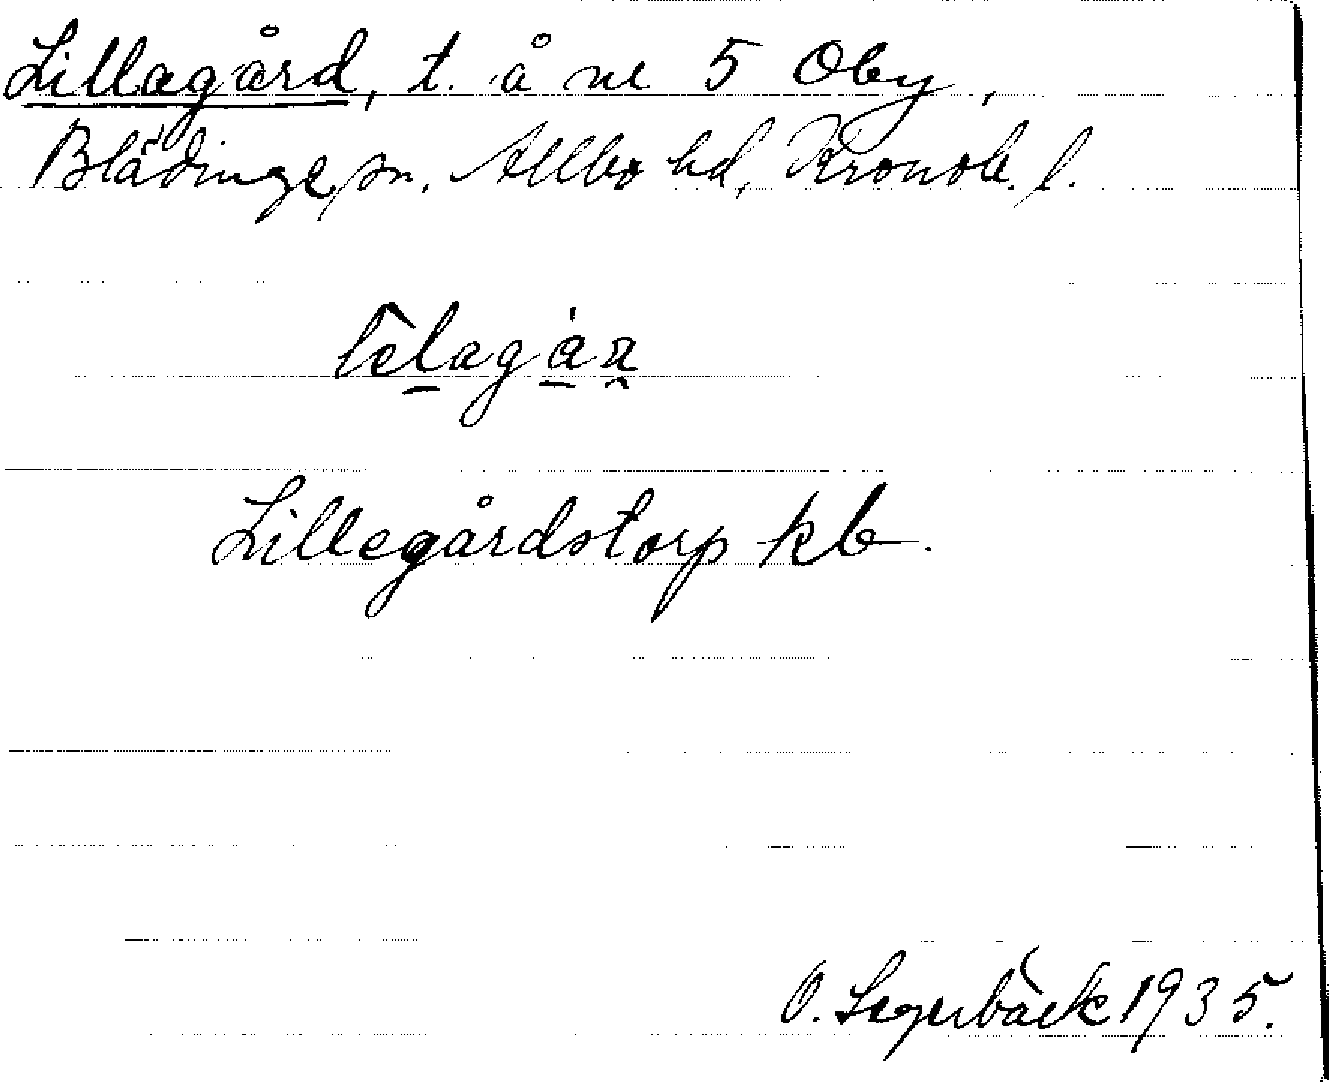 Lillagård, t. å nr 5 Oby,
Blädinge sn. Allbo hd, Kronob. l.
Lillegårdstorp kb.
O. Segerbäck 1935.